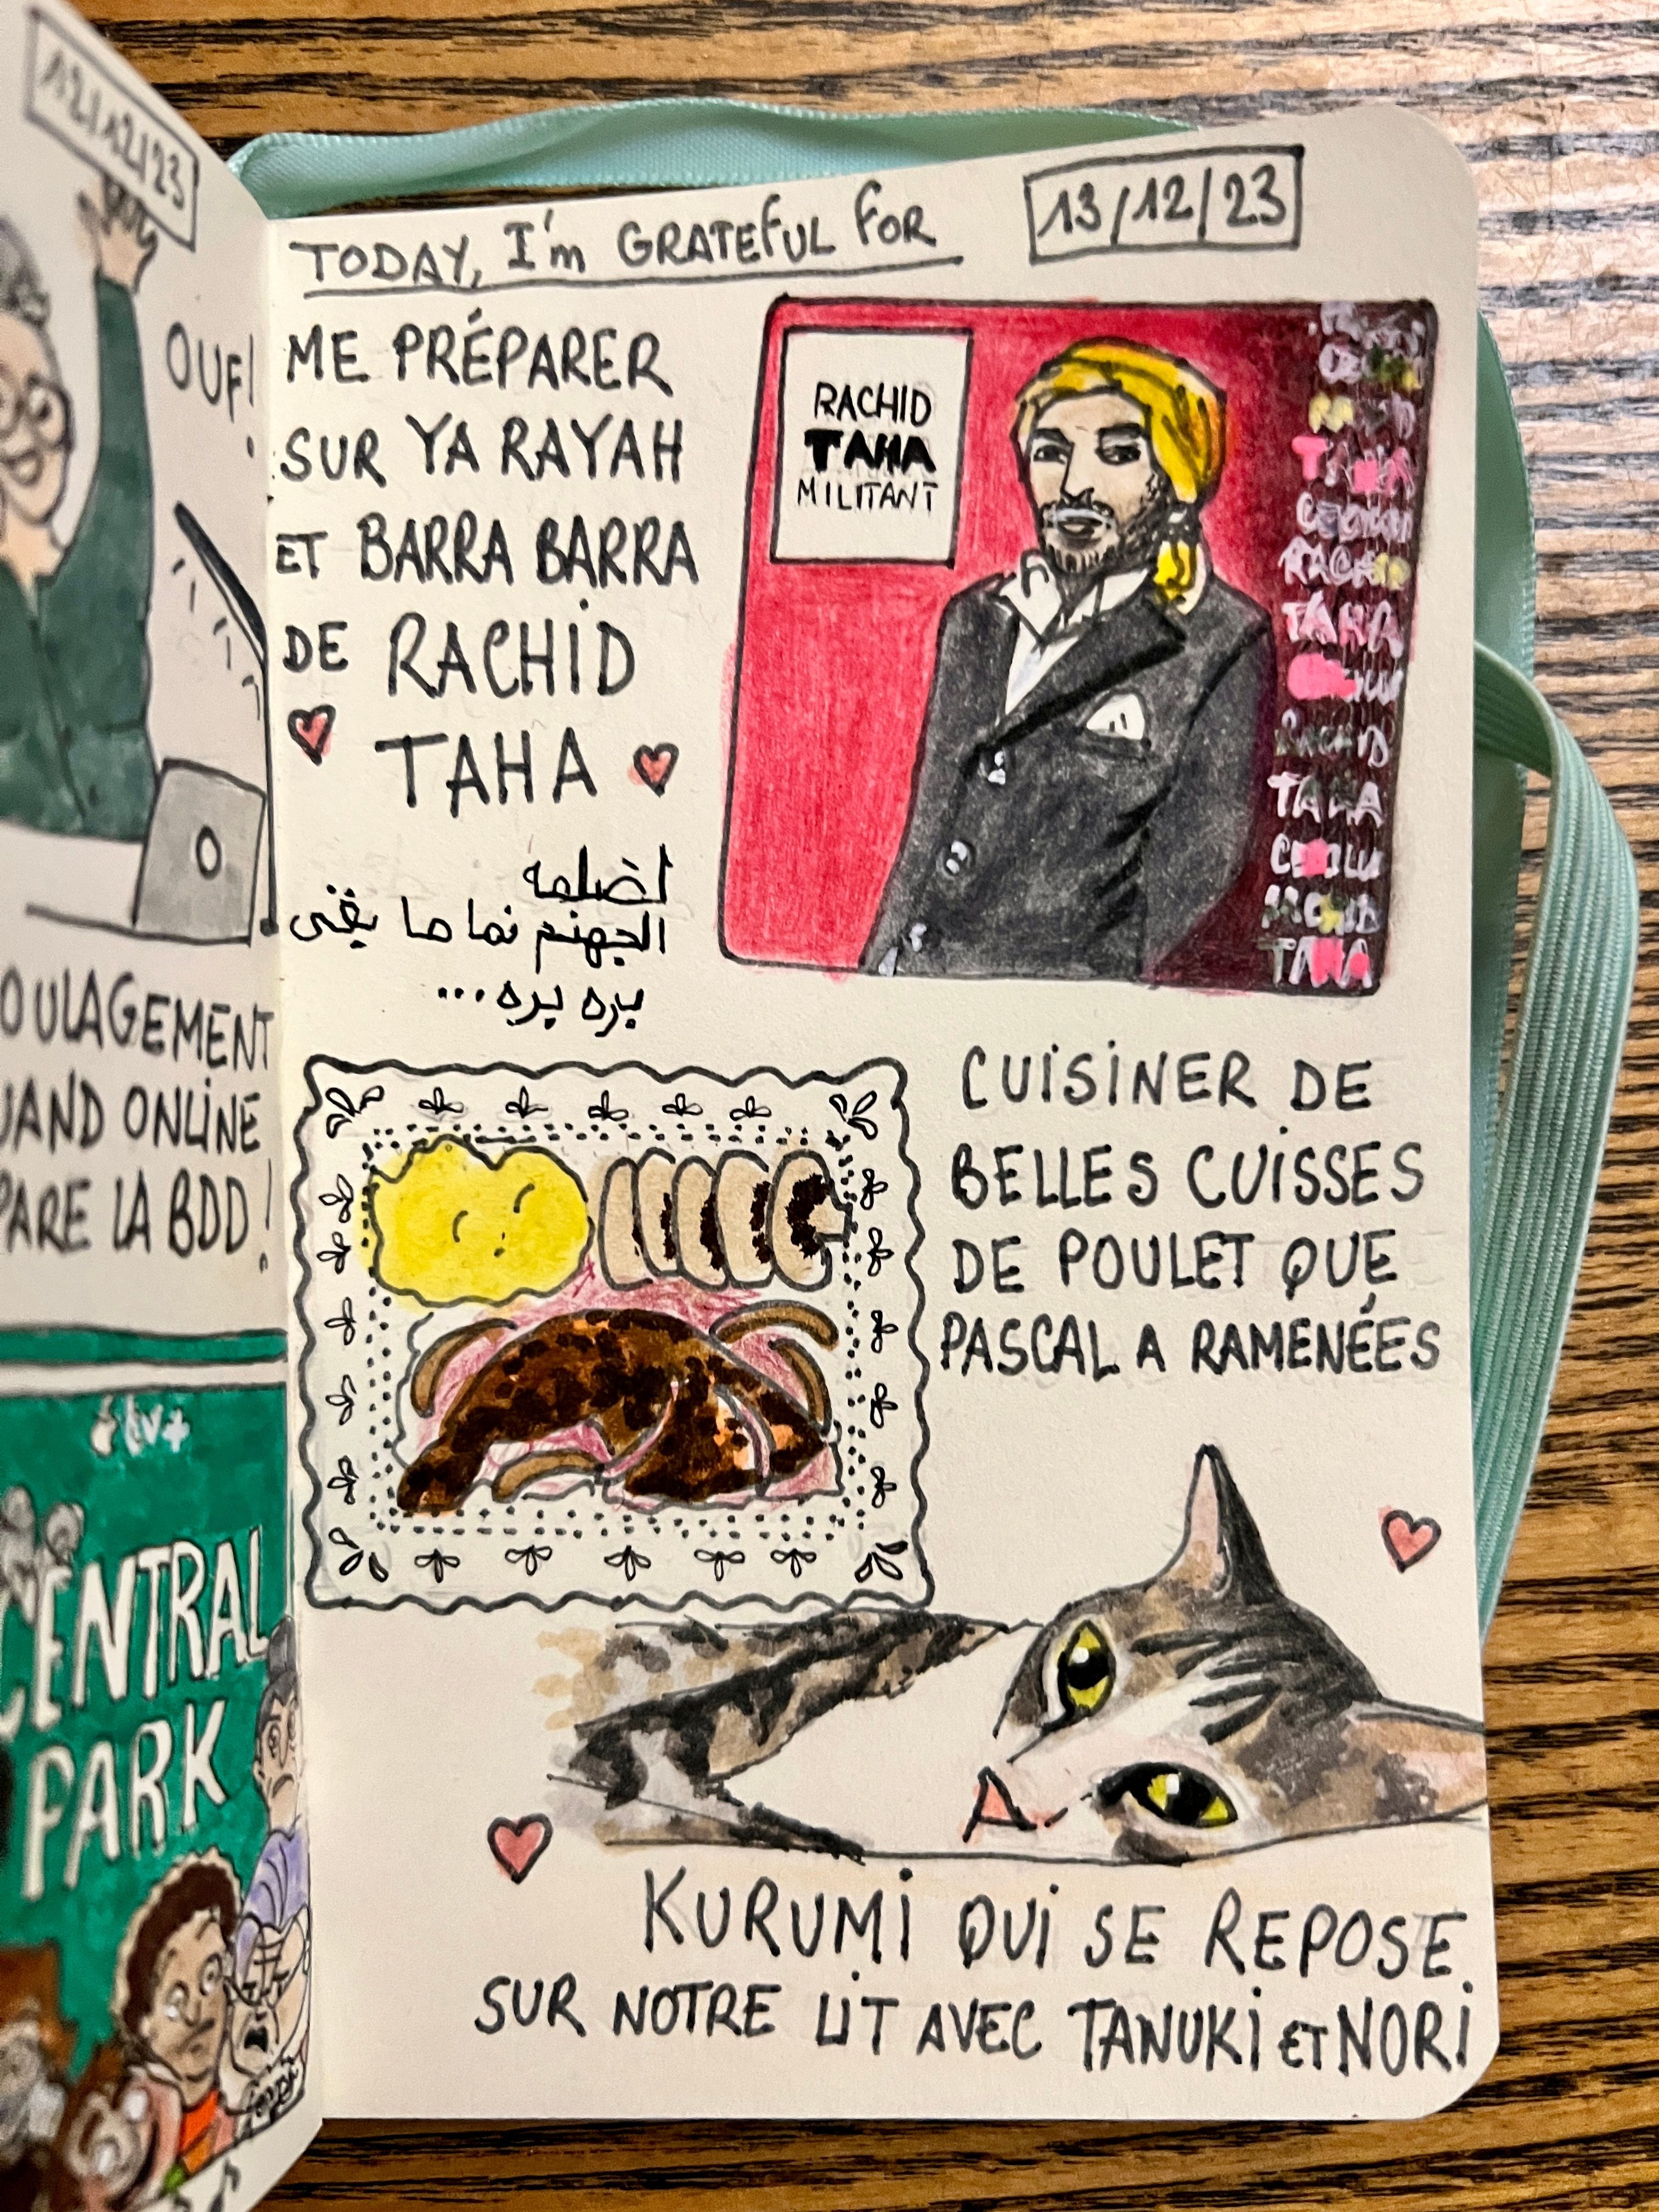 12/12/23
OUF!
OULAGEMENT
UAND ONLINE
PARE LA BDD!
tv+
CENTRAL
PARK
TODAY, I'm GRATEFUL FOR
13/12/23
ME PRÉPARER
SUR YA RAYAH
ET BARRA BARRA
DE RACHID
TAHA
RACHID
TAHA
MILITANT
TAHA
RACHID
TAHA
RACHID
TAHA
TAHA
بره بره...
CUISINER DE
BELLES CUISSES
DE POULET QUE
PASCAL A RAMENÉES
KURUMI QUI SE REPOSE
SUR NOTRE LIT AVEC TANUKI ET NORI